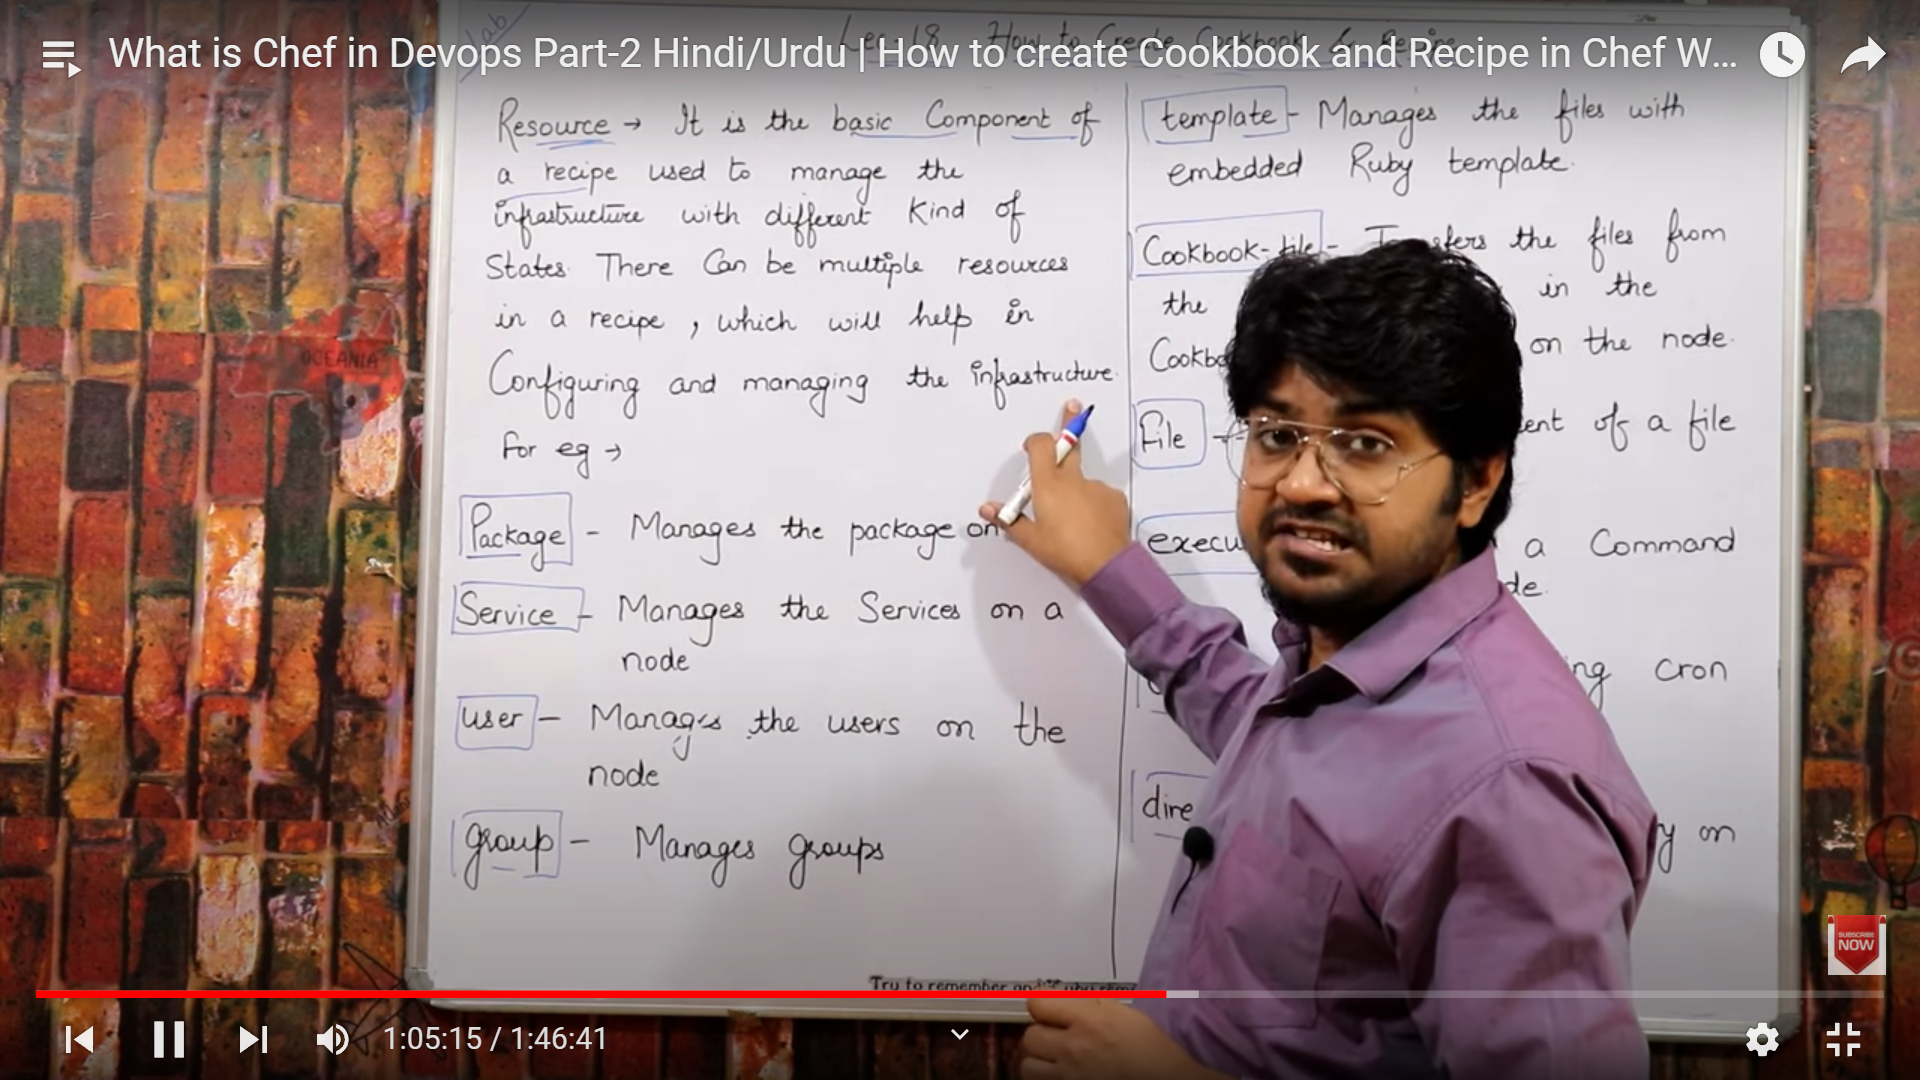 What is Chef in Devops Part-2 Hindi/Urdu | How to create Cookbook and Recipe in Chef W...
Lab
Lec-18 How to Create Cookbook & Recipe
Resource → It is the basic Component of
a recipe used to manage the
infrastructure with different Kind of
States. There Can be multiple resources
in a recipe, which will help in
Configuring and managing the infrastructure.
For eg →
Package - Manages the package on
Service - Manages the Services on a
node
user - Manages the users on the
node
group - Manages groups
template - Manages the files with
embedded Ruby template.
Cookbook-file - Transfers the files from
the in the
on the node.
File - of a file
a Command
cron
on
OCEANIA
Try to remember
SUBSCRIBE
NOW
1:05:15 / 1:46:41